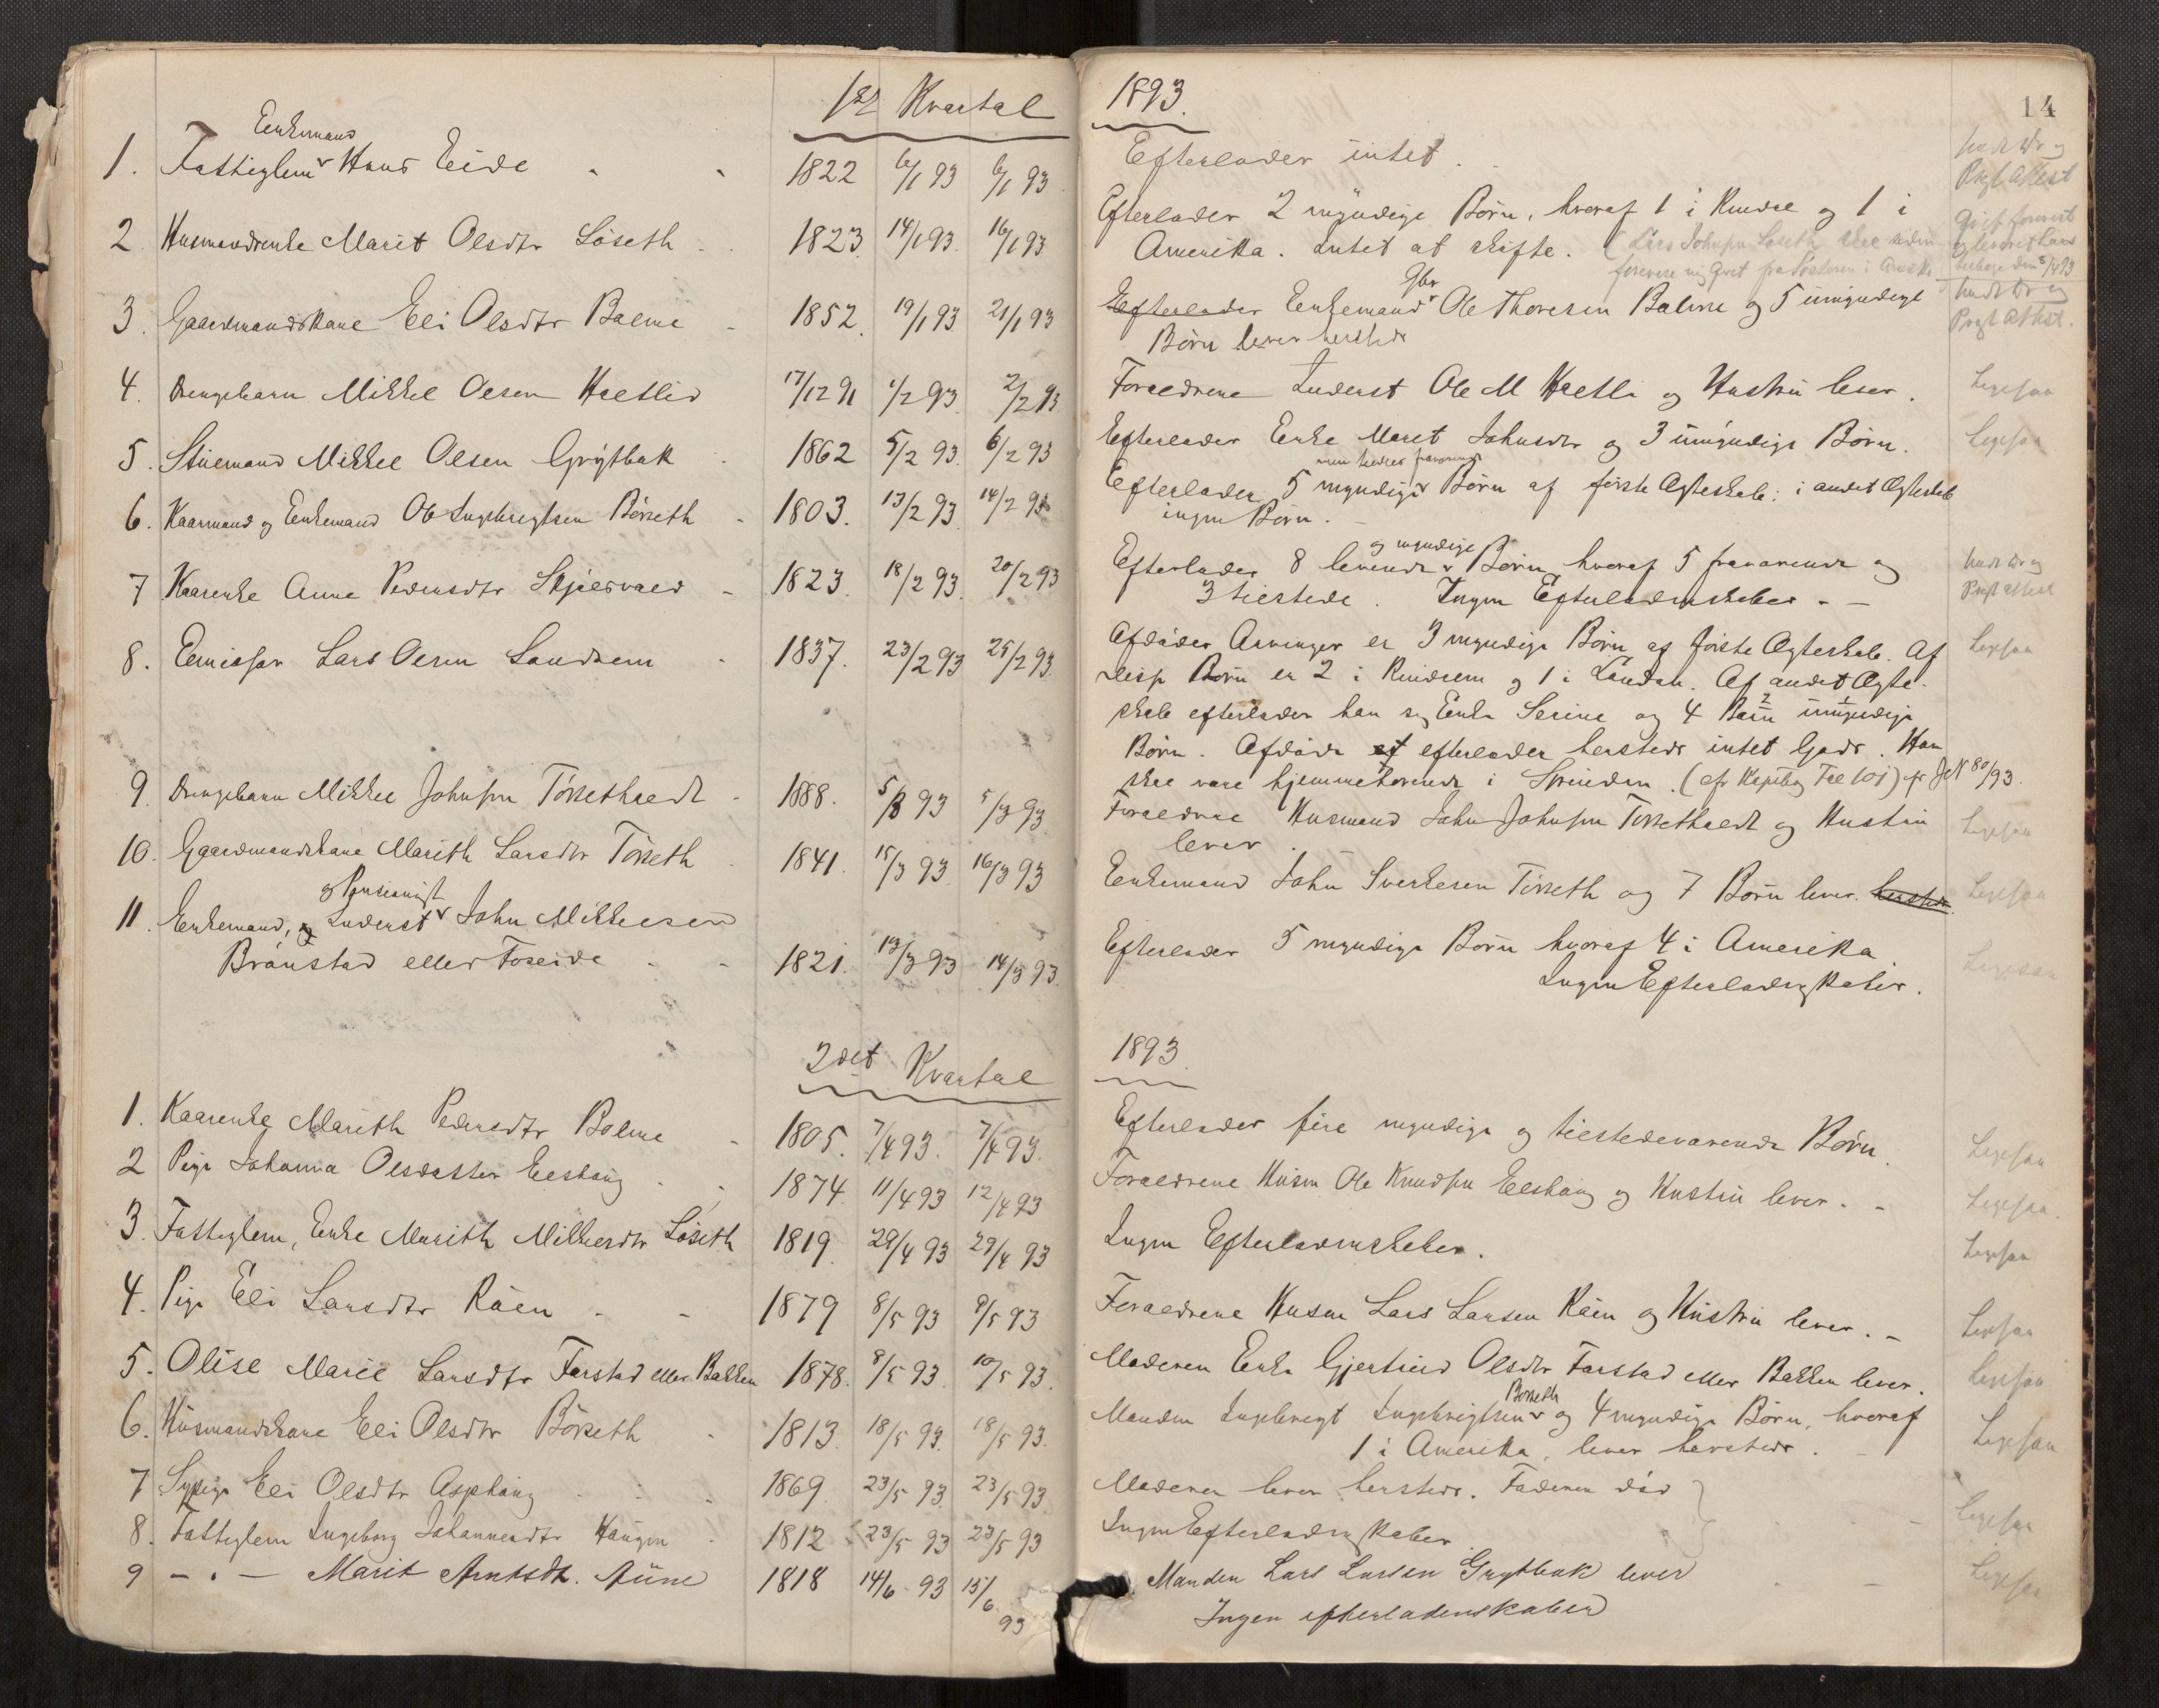 1ste Kvartal
Enkemand
1. Fattiglem v Hans Eide 1822 6/1 93 6/1 93
2. Husmandsenke Marit Olsdtr Löseth 1823 14/1 93. 16/1 93
3. Gaardmandskane Eli Olsdtr Bolme 1852. 19/1 93 21/1 93
4. Drengebarn Mikkel Olsen Hletlid 17/12 91 1/2 93 2/2 93
5. Stuemand Mikkel Olsen Grytbak 1862 5/2 93. 6/2 93
6. Kaarmand og Enkemand Ole Ingebrigtsen Börseth 1803. 13/2 93 14/2 93
7 Kaarenke Anne Pedersdtr Skjølsvold 1823. 18/2 93. 20/2 93
8. Emissær Lars Olsen Landsem 1837. 23/2 93 25/2 93.
9. Drengebarn Mikkel Johnsen Törsethaedt 1888. 5/3 93 5/3 93.
10. Gaardmandskane Marith Larsdtr Törseth 1841. 15/3 93 16/3 93
og Pensionist
11. Enkemand, og Inderst v John Mikkelsen
Brönstad eller Foseide 1821. 13/3 93 14/3 93.
2det Kvartal
1. Kaarenke Marith Pedersdtr Bolme 1805. 7/4 93. 7/4 93.
2 Pige Johanna Olsdatter Elshaug 1874 11/4 93 12/4 93
3. Fattiglem, Enke Marith Mikkelsdtr Löseth 1819. 29/4 93 29/4 93
4. Pige Eli Larsdtr Råen 1879 8/5 93 9/5 93
5. Olise Marie Larsdtr Farstad eller Bakken 1878. 8/5 93 10/5 93.
6. Husmandskane Eli Olsdtr Börseth 1813. 18/5 93. 18/5 93.
7 Sypige Eli Olsdtr Asphaug 1869 23/5 93. 23/5 93
8. Fattiglem Ingeborg Johannesdtr Haugen 1812 23/5 93 23/5 93
9 – " – Marit Arntsdtr. Aune 1818 14/6 93 15/6
93
1893.
14
Efterlader intet.
Efterlader 2 myndige Børn, hvoraf 1 i Rindal og 1 i
Amerika. Intet at skifte. (Lars Johnsen Löseth skal siden
forevise mig Brev fra Søsteren i Amerika
Gbr
Efterlader Enkemand v Ole Thoresen Bolme og 5 umyndige
Børn lever hersteds
Forældrene Inderst Ole M Hletli og Hustru lever.
Efterlader Enke Marit Johnsdtr og 3 umyndige Børn.
Efterlader 5 myndige v Børn af første Ægteskab; i andet Ægteskab
ingen Børn.
og myndige
Efterlader 8 levende v Børn, hvoraf 5 fraværende og
3 tilstede. Ingen Efterladenskaber. –
Afdødes Arvinger er 3 myndige Børn af første Ægteskab. Af
disse Børn er 2 i Rindalen og 1 i Landsn. Af andet Ægte-
skab efterlader han sig Enke Serine og 4 Børn umyndige
Børn. Afdøde af efterlader hersteds intet Gods. Han
skal være hjemmehørende i Surendal. (cfr Kopibog Fol 101) cfr JN 80/93.
Forældrene Husmand John Johnsen Törsethaedt og Hustru
lever.
Enkemand John Sverkesen Törseth og 7 Børn lever. hersteds.
Efterlader 5 myndige Børn hvoraf 4 i Amerika.
Ingen Efterladenskaber.
1893.
Efterlader fire myndige og tilstedeværende Børn.
Forældrene Husm Ole Knudsen Elshaug og Hustru lever. –
Ingen Efterladenskaber.
Forældrene Husm Lars Larsen Råen og Hustru lever. –
Moderen Enke Gjertrud Olsdtr Farstad eller Bakken lever.
Börseth
Manden Ingebrigt Ingebrigtsen v og 4 myndige Børn, hvoraf
1 i Amerika, lever hersteds.
Moderen lever hersteds. Faderen død
Ingen Efterladenskaber
Manden Lars Larsen Grytbak lever
Ingen efterladenskaber